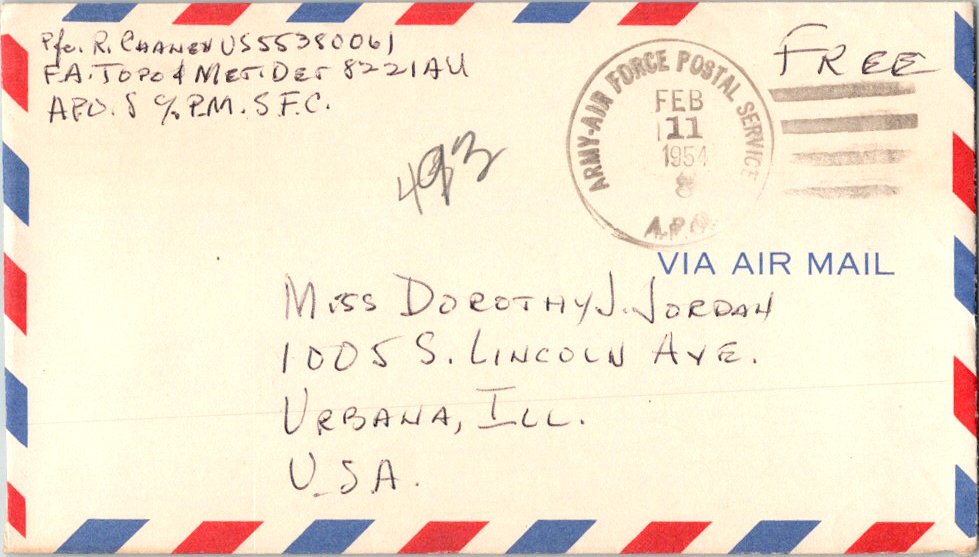 Pfc. R. CHANEY US55380061
F.A. TOPO & MET. DET 8221AU
APO. 8 % P.M. S.F.C.
FREE
ARMY-AIR FORCE POSTAL SERVICE
FEB
11
1954
8
A.P.O.
493
VIA AIR MAIL
MISS DOROTHY J. JORDAN
1005 S. LINCOLN AVE.
URBANA, ILL.
U.S.A.